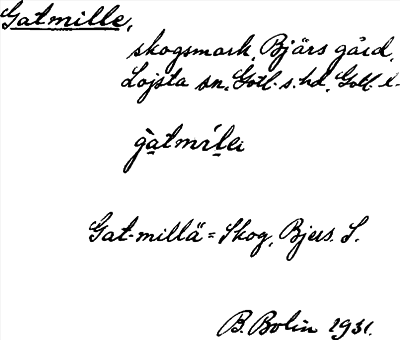 Gatmille,
skogsmark, Bjärs gård,
Lojsta sn, Gotl. s. hd, Gotl. l.
Gat-millä = Skog, Bjers. L.
B. Bolin 1931.